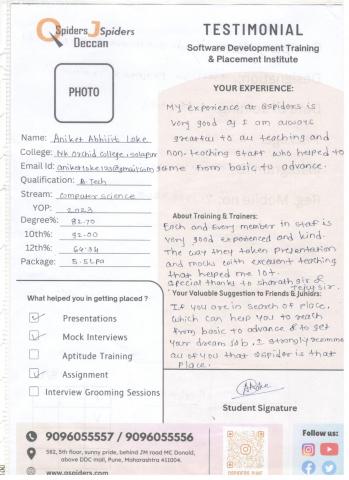 QSpiders JSpiders
Deccan
TESTIMONIAL
Software Development Training
& Placement Institute
PHOTO
YOUR EXPERIENCE:
My experience at Qspiders is
very good as I am always
greatful to all teaching and
non-teaching staff who helped to
me from basic to advance.
Name: Aniket Abhijit Loke
College: Nk Orchid college, solapur
Email Id:
Qualification: B.Tech
Stream: computer science
YOP: 2023
Degree%: 82.70
10th%: 92.00
12th%: 64.34
Package: 5.5LPA
About Training & Trainers:
Each and Every member in staf is
very good experienced and kind.
The way they taken presentation
and mocks with excellent teaching
that helped me lot.
special thanks to sharath sir &
sir.
Your Valuable Suggestion to Friends & Juniors:
If you are in search of place,
which can help you to reach
from basic to advance & to get
your dream job, I strongly recomme
all of you that Qspider is that
Place.
What helped you in getting placed ?
Presentations
Mock Interviews
Aptitude Training
Assignment
Interview Grooming Sessions
Student Signature
9096055557 / 9096055556
582, 5th floor, sunny pride, behind JM road MC Donald,
above DDC mall, Pune, Maharashtra 411004.
www.qspiders.com
QSPIDERS_PUNE
Follow us: